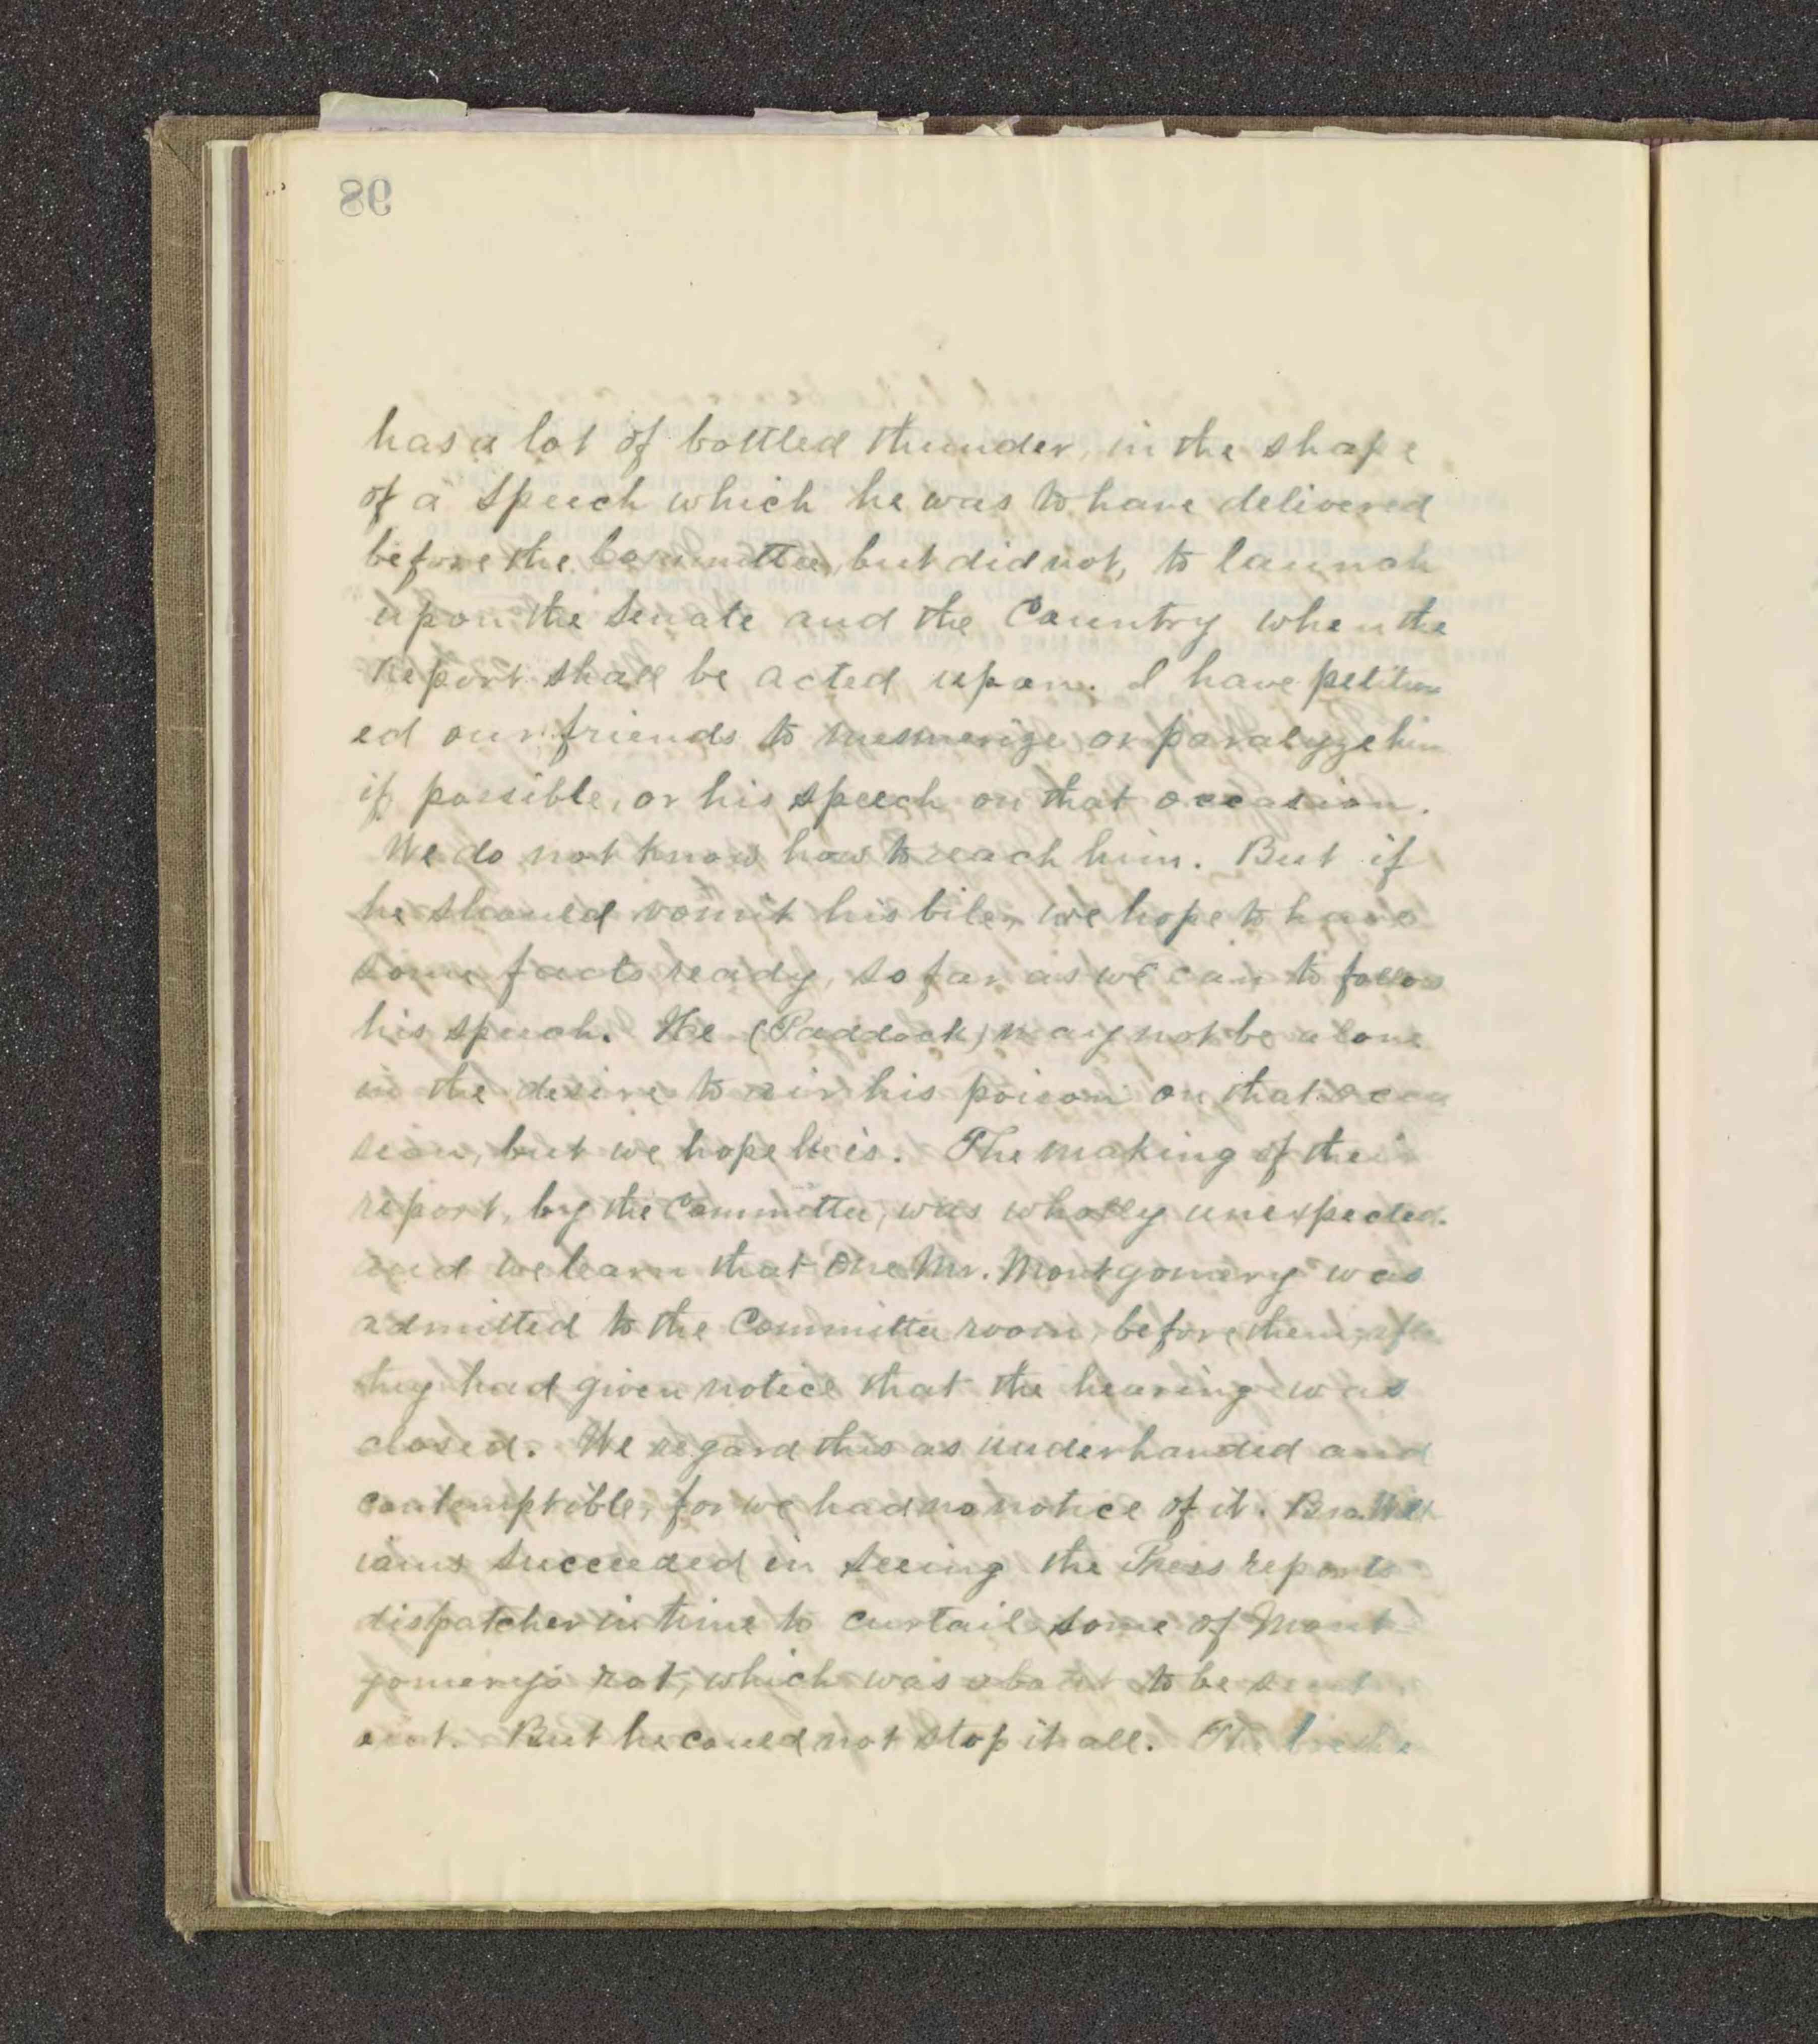 98
has a lot of bottled thunder, in the shape
of a speech which he was to have delivered
before the Committee, but did not, to launch
upon the Senate and the Country when the
report shall be acted upon. I have petition
ed our friends to mesmerize or paralyze him
if possible, or his speech on that occasion.
We do not know how to reach him. But if
he should vomit his bile, we hope to have
some facts ready, so far as we can to follow
his speech. He (Paddock) may not be alone
in the desire to air his poison on that occa
sion, but we hope he is. The making of their
report, by the Committee, was wholly unexpected.
and we learn that one Mr. Montgomery was
admitted to the Committee room, before them, after
they had given notice that the hearing was
closed. We regard this as underhanded and
contemptible, for we had no notice of it. Bro. Will
iams succeeded in seeing the Press reports
dispatcher in time to curtail some of Mont
gomery's rot, which was about to be sent
out. But he could not stop it all. The